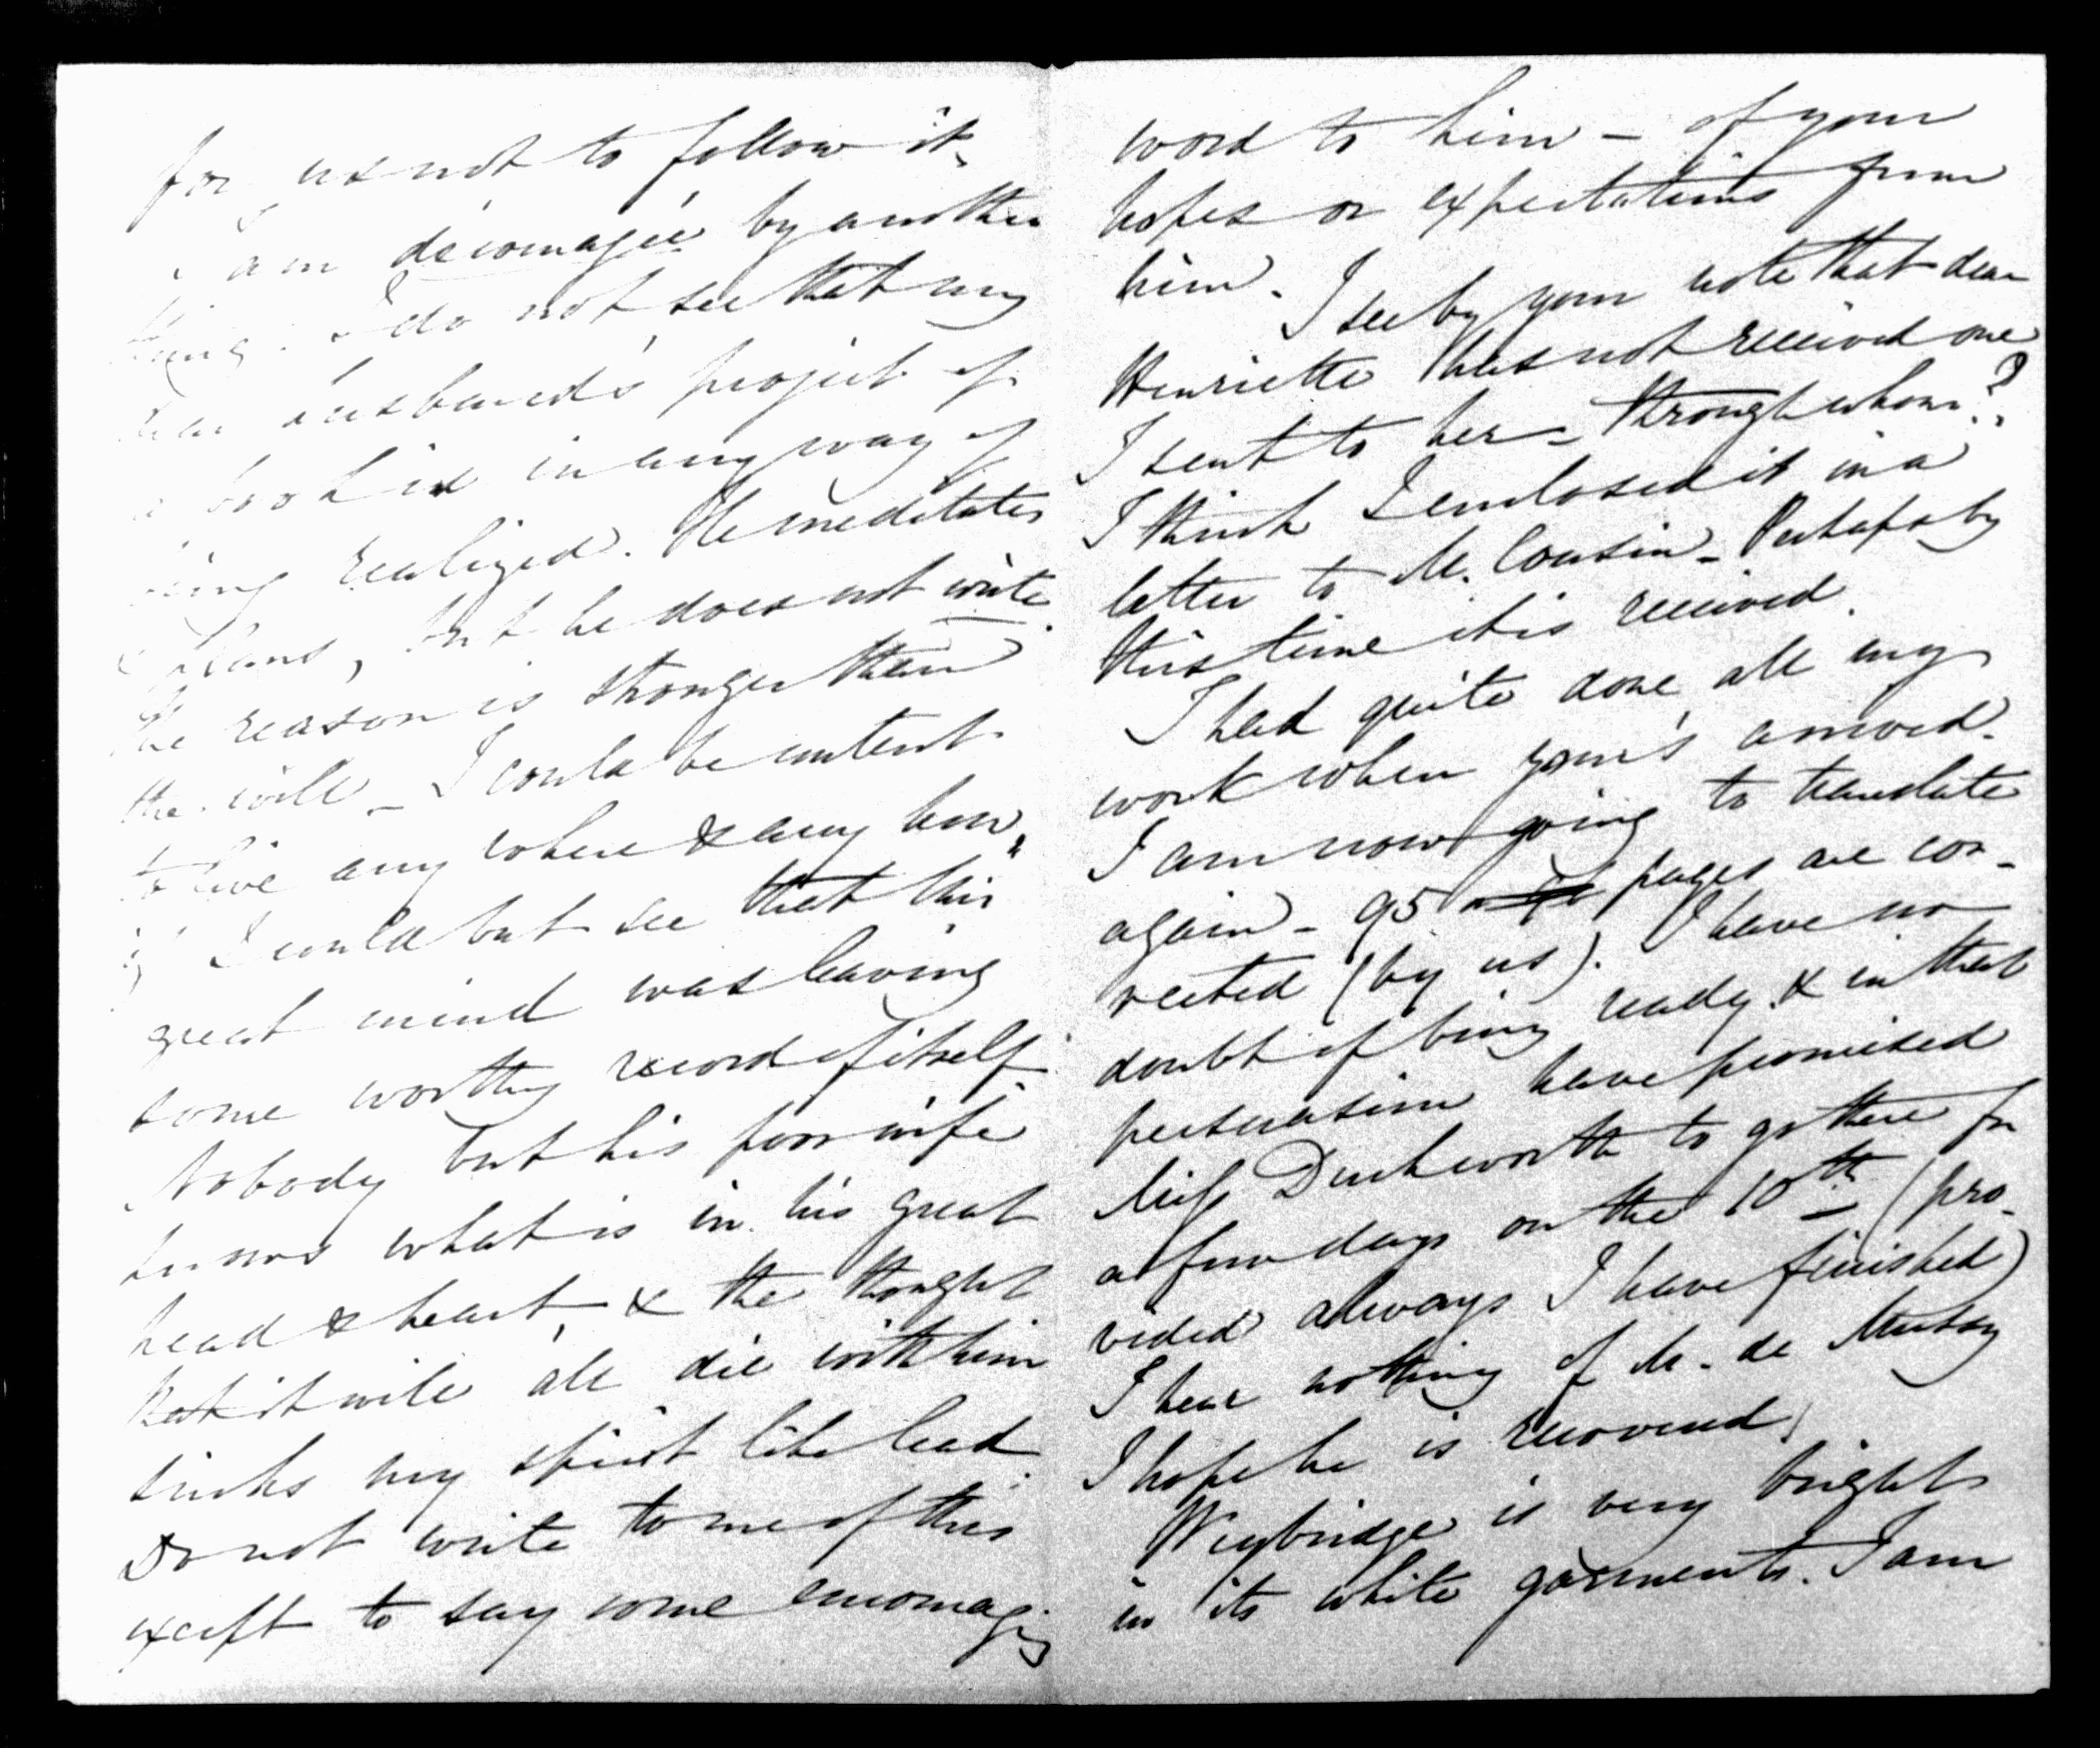 for us not to follow it.
I am découragée by another
thing. I do not see that my
dear husband's project of
a book is in any way of
being realized. He meditates
& plans, but he does not write.
The reason is stronger than
the will – I could be content
to live any where & any how,
if I could but see that his
great mind was leaving
some worthy record of itself.
Nobody but his poor wife
knows what is in his great
head & heart, & the thought
that it will all die with him
sinks my spirit like lead.
Do not write to me of this
except to say some encouraging
word to him – of your
hopes or expectations from
him. I see by your note that dear
Henriette has not received one
I sent to her – through whom?
I think I enclosed it in a
letter to M. Cousin – Perhaps by
this time it is received.
I had quite done all my
work when your's arrived.
I am now going to translate
again – 95 pages are cor-
rected (by us). I have no
doubt of being ready & in that
persuasion have promised
Miss Duckworth to go there for
a few days on the 10th (pro-
vided always I have finished)
I hear nothing of M. de Mussy
I hope he is recovered.
Weybridge is very bright
in its white garments. I am